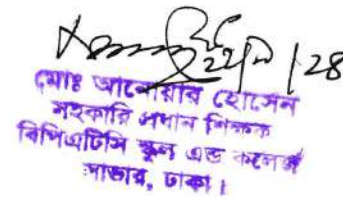 মোঃ আনোয়ার হোসেন
সহকারি প্রধান শিক্ষক
বিপিএটিসি স্কুল এন্ড কলেজ
সাভার, ঢাকা।